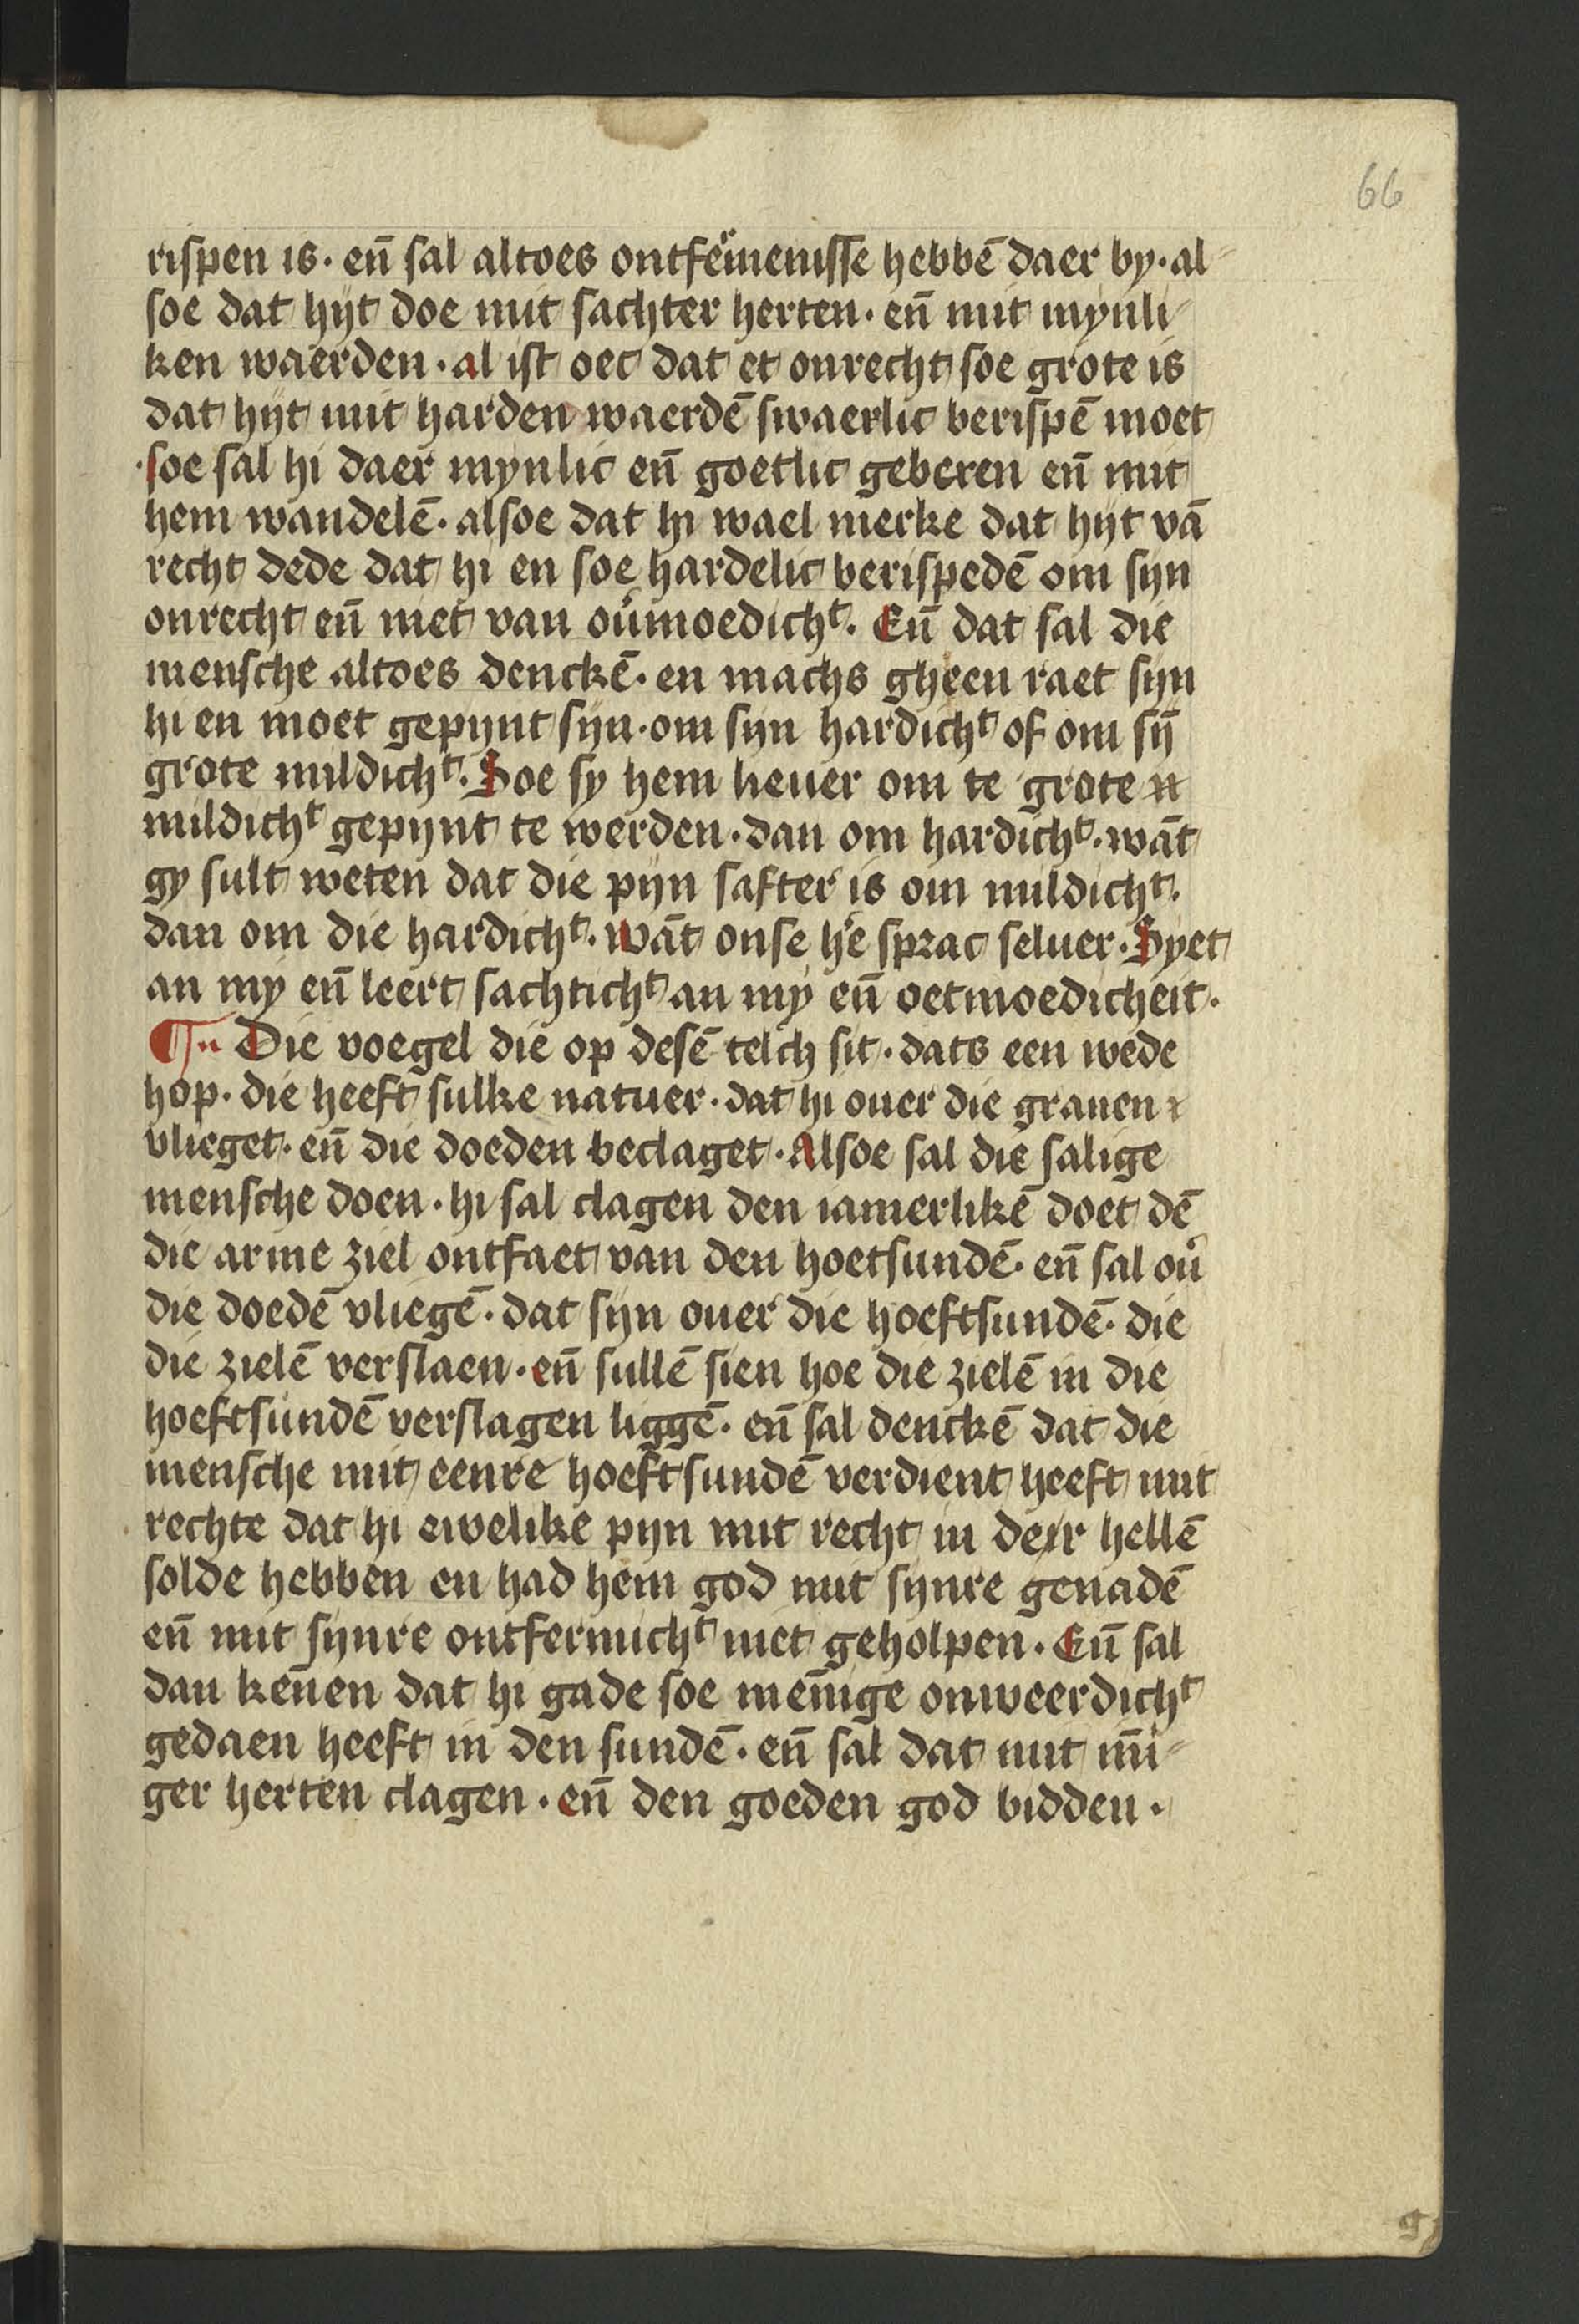 66
rispen is · en̄ sal altoes ontfe͛menisse hebbē daer by · al⸗
soe dat hijt doe mit sachter herten · en̄ mit mynli⸗
ken waerden · al ist oec dat et onrecht soe grote is
dat hijt mit harden waerdē swaerlic berispē moet
· soe sal hi daer mynlic en̄ goetlic geberen en̄ mit
hem wandelē · alsoe dat hi wael merke dat hijt vā
recht dede dat hi en soe hardelic berispedē om sijn
onrecht en̄ niet van ou͛moedichᵗ · En̄ dat sal die
mensche altoes denckē · en machs gheen raet sijn
hi en moet gepijnt sijn · om sijn hardichᵗ of om sȳ
grote mildichᵗ · Soe sy hem lieuer om te grote
mildichᵗ gepijnt te werden · dan om hardichᵗ · wāt
gy sult weten dat die pijn safter is om mildichᵗ ·
dan om die hardichᵗ · wāt onse he͛ sprac seluer · Syet
an my en̄ leert sachtichᵗ an my en̄ oetmoedicheit ·
¶ Die voegel die op desē telch sit · dats een wede
hop · die heeft sulke natuer · dat hi ouer die grauen
vlieget · en̄ die doeden beclaget · Alsoe sal die salige
mensche doen · hi sal clagen den iamerlikē doet dē
die arme ziel ontfaet van den hoetsundē · en̄ sal ou͛
die doedē vliegē · dat sijn ouer die hoeftsundē · die
die zielē verslaen · en̄ sullē sien hoe die zielē in die
hoeftsundē verslagen liggē · en̄ sal denckē dat die
mensche mit eenre hoeftsundē verdient heeft mit
rechte dat hi ewelike pijn mit recht in der hellē
solde hebben en had hem god mit sijnre genadē
en̄ mit sijnre ontfermichᵗ niet geholpen · En̄ sal
dan kēnen dat hi gade soe mēnige onweerdichᵗ
gedaen heeft in den sundē · en̄ sal dat mit īni⸗
ger herten clagen · en̄ den goeden god bidden ·
g